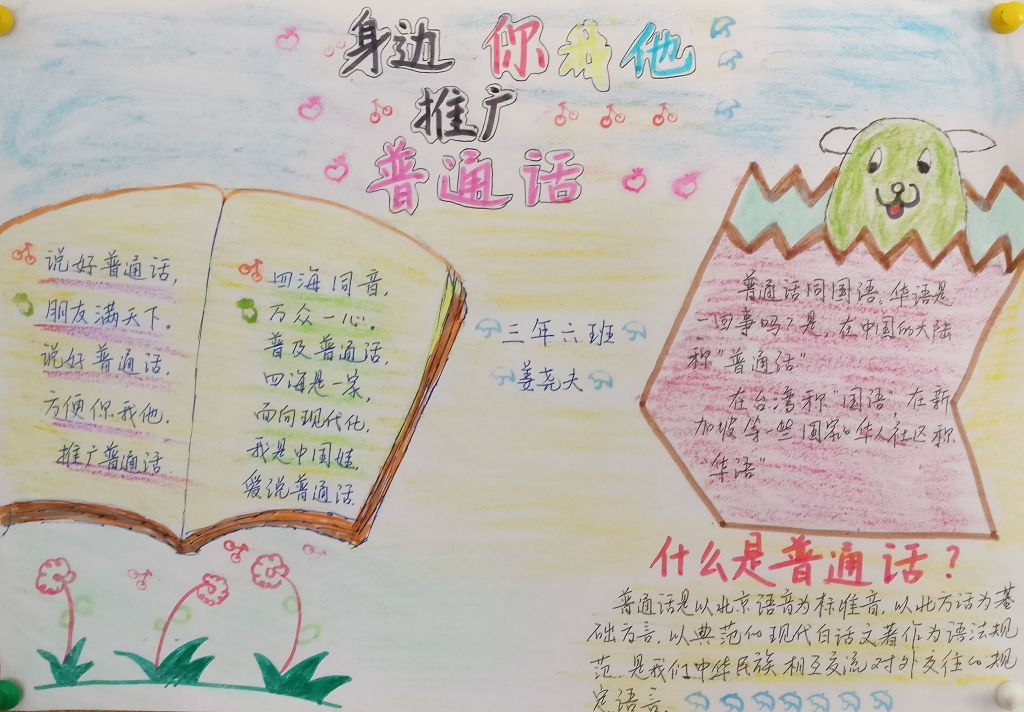 身边 你我他
推广
普通话
说好普通话，
朋友满天下。
说好普通话，
方便你我他.
推广普通话.
四海同音，
万众一心。
普及普通话，
四海是一家，
面向现代化，
我是中国娃，
爱说普通话.
三年六班
姜尧夫
普通话同国语、华语是
一回事吗？是，在中国的大陆
称“普通话”
在台湾称“国语”在新
加坡等一些国家的华人社区称
“华语”
什么是普通话？
普通话是以北京语音为标准音，以北方话为基
础方言，以典范的现代白话文著作为语法规
范，是我们中华民族相互交流对外交往的规
定语言。